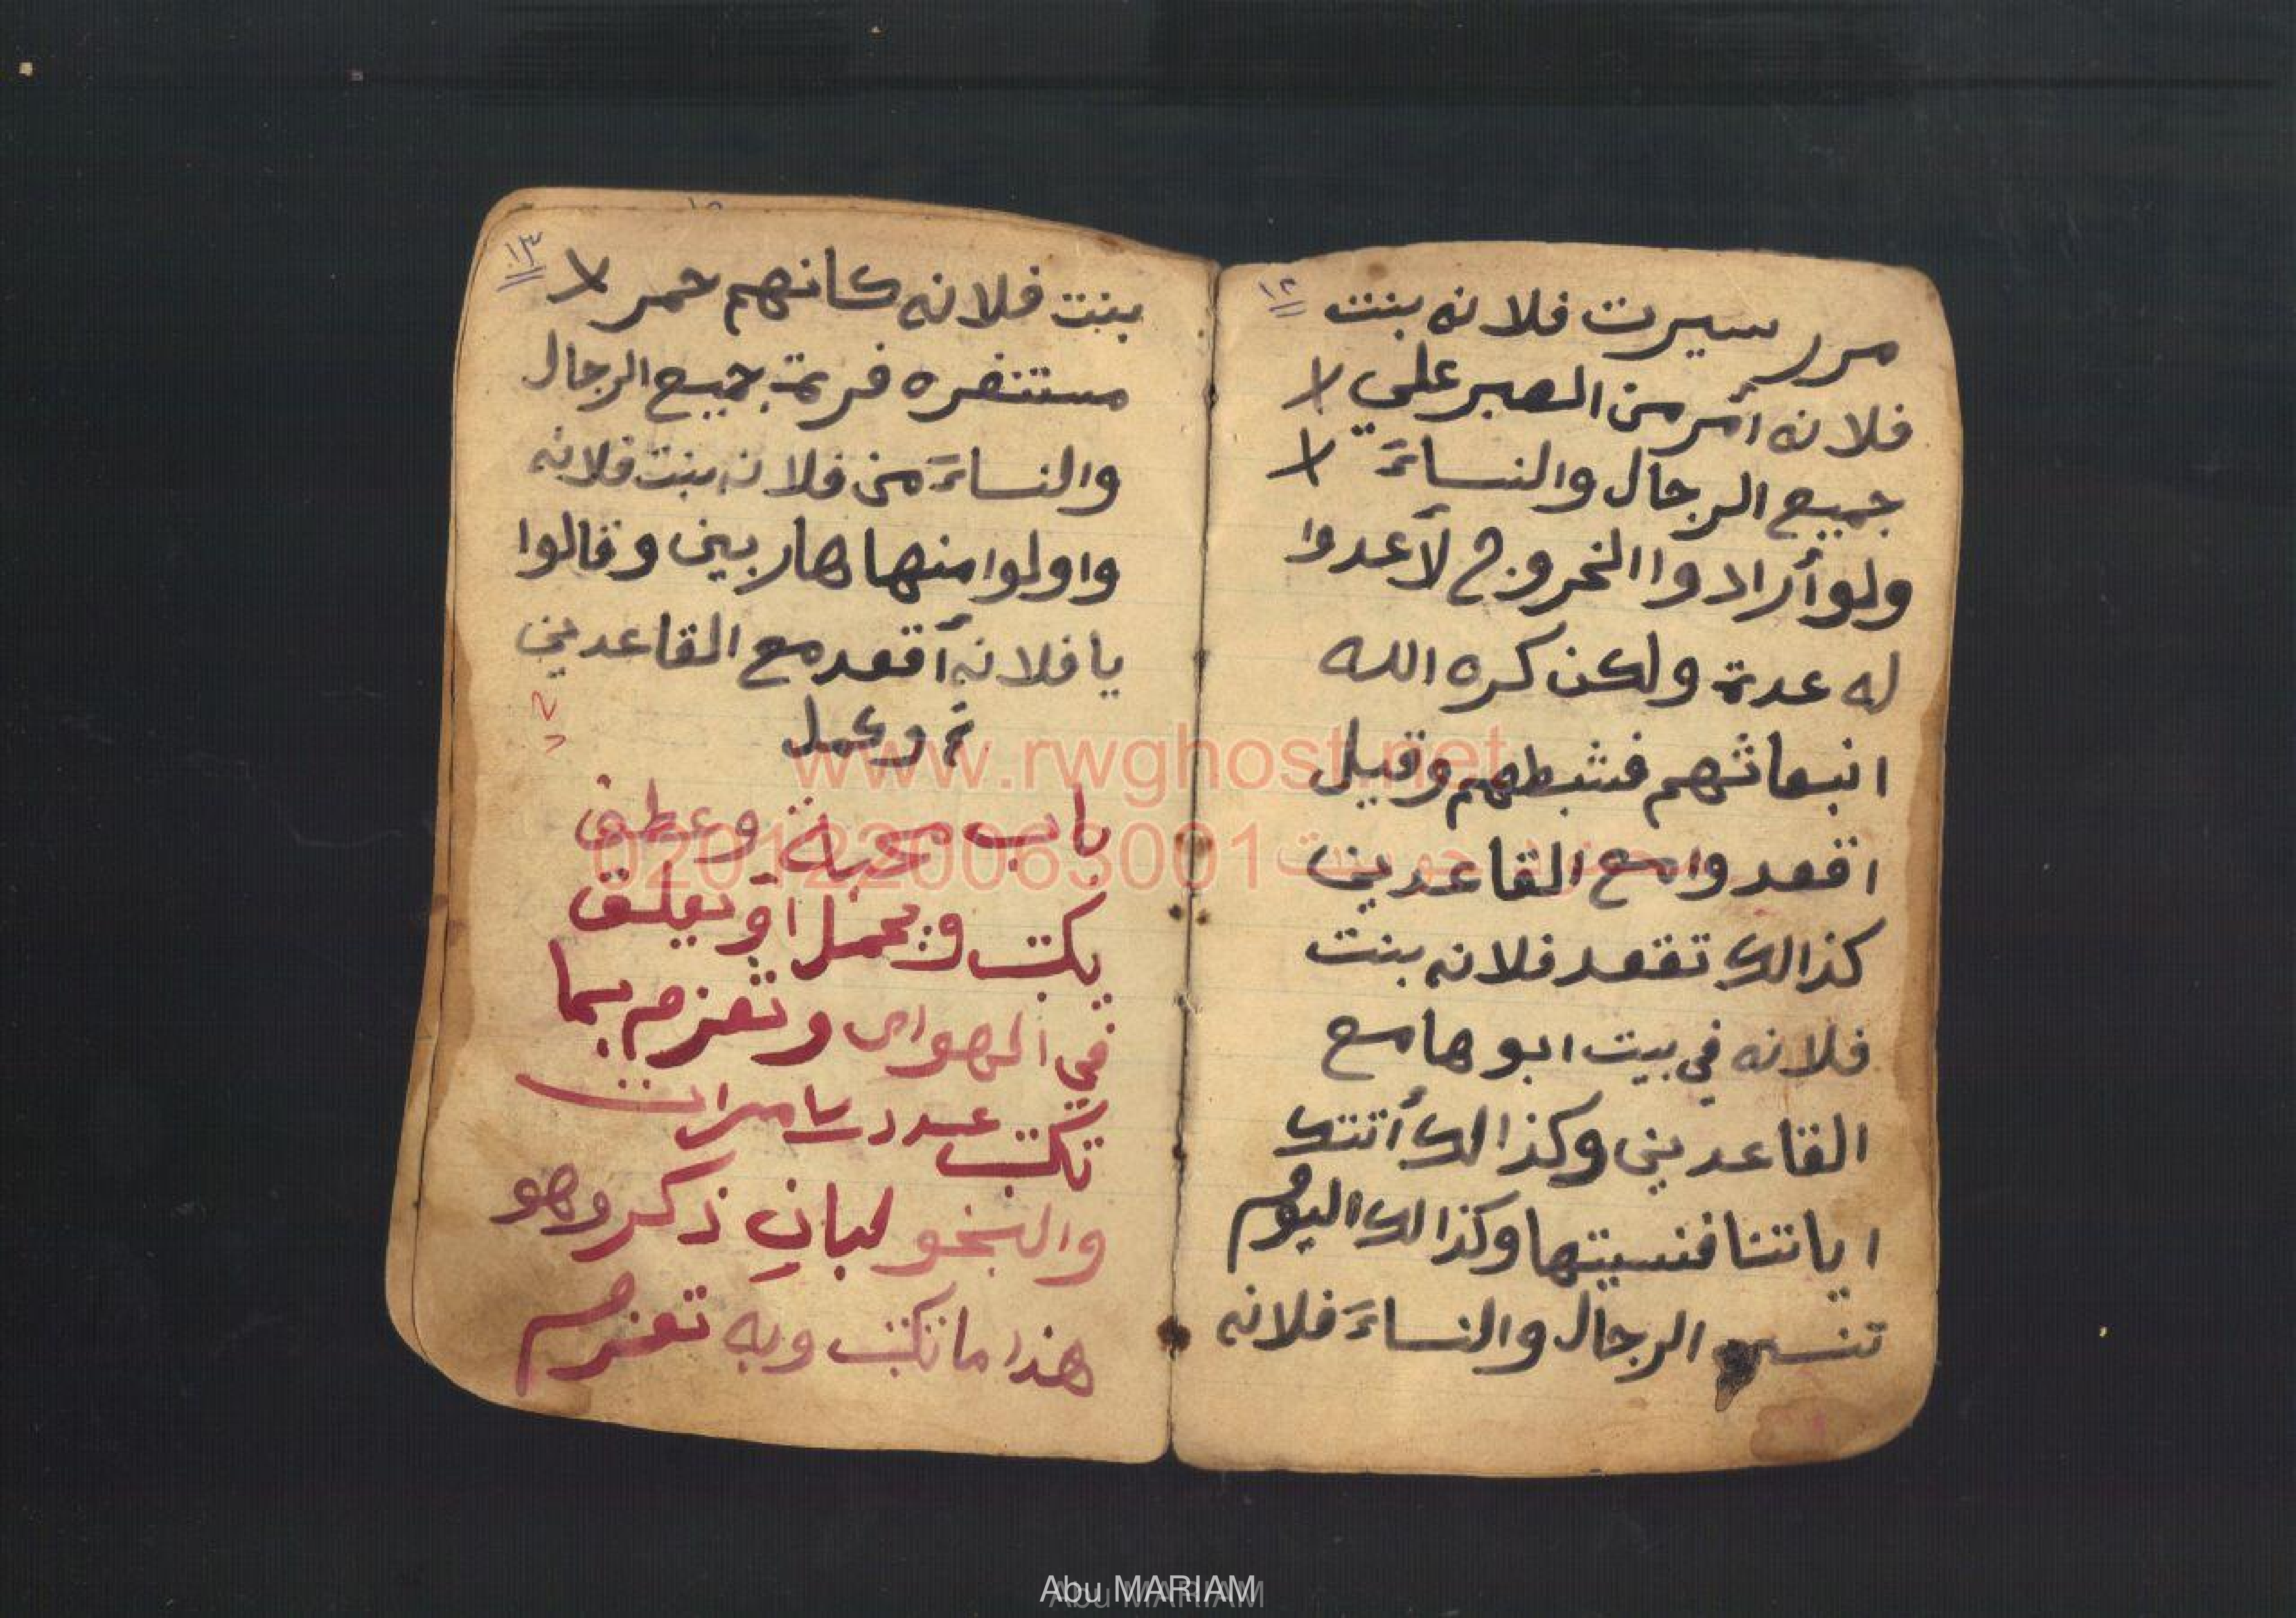 ١٢
مرر سيرت فلانه بنت
فلانه أمر من الصبر علي لا
جميع الرجال والنساءَ لا
ولو أرادوا الخروج لآعدوا
له عدة ولكن كره الله
انبعاثهم فثبطهم وقيل
اقعدوا مع القاعدين
كذالك تقعد فلانه بنت
فلانه في بيت ابوها مع
القاعدين وكذالك أتتك
اياتنا فنسيتها وكذالك اليوم
الرجال والنساءَ فلانه
١٣
بنت فلانه كانهم حمر لا
مستنفره فرة جميع الرجال
والنساءَ من فلانه بنت فلانه
واولوا منها هاربين وقالوا
يا فلانه أقعد مع القاعدين
تم وكمل
باب محبة وعطف
يكتب ويحمل أو يعلق
في الهواى وتعزم بما
تكتب عدد ٧ مرات
والبخو لبان ذكر وهو
هذا ما تكتب وبه تعزم
www.rwghost.net
0201220063001
Abu MARIAM